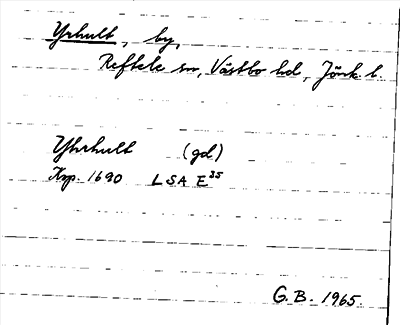 Yrhult, by,
Reftele sn, Västbo hd, Jönk. l.
Yhrhult (gd)
Ksp. 1690 LSA E35
G.B. 1965.